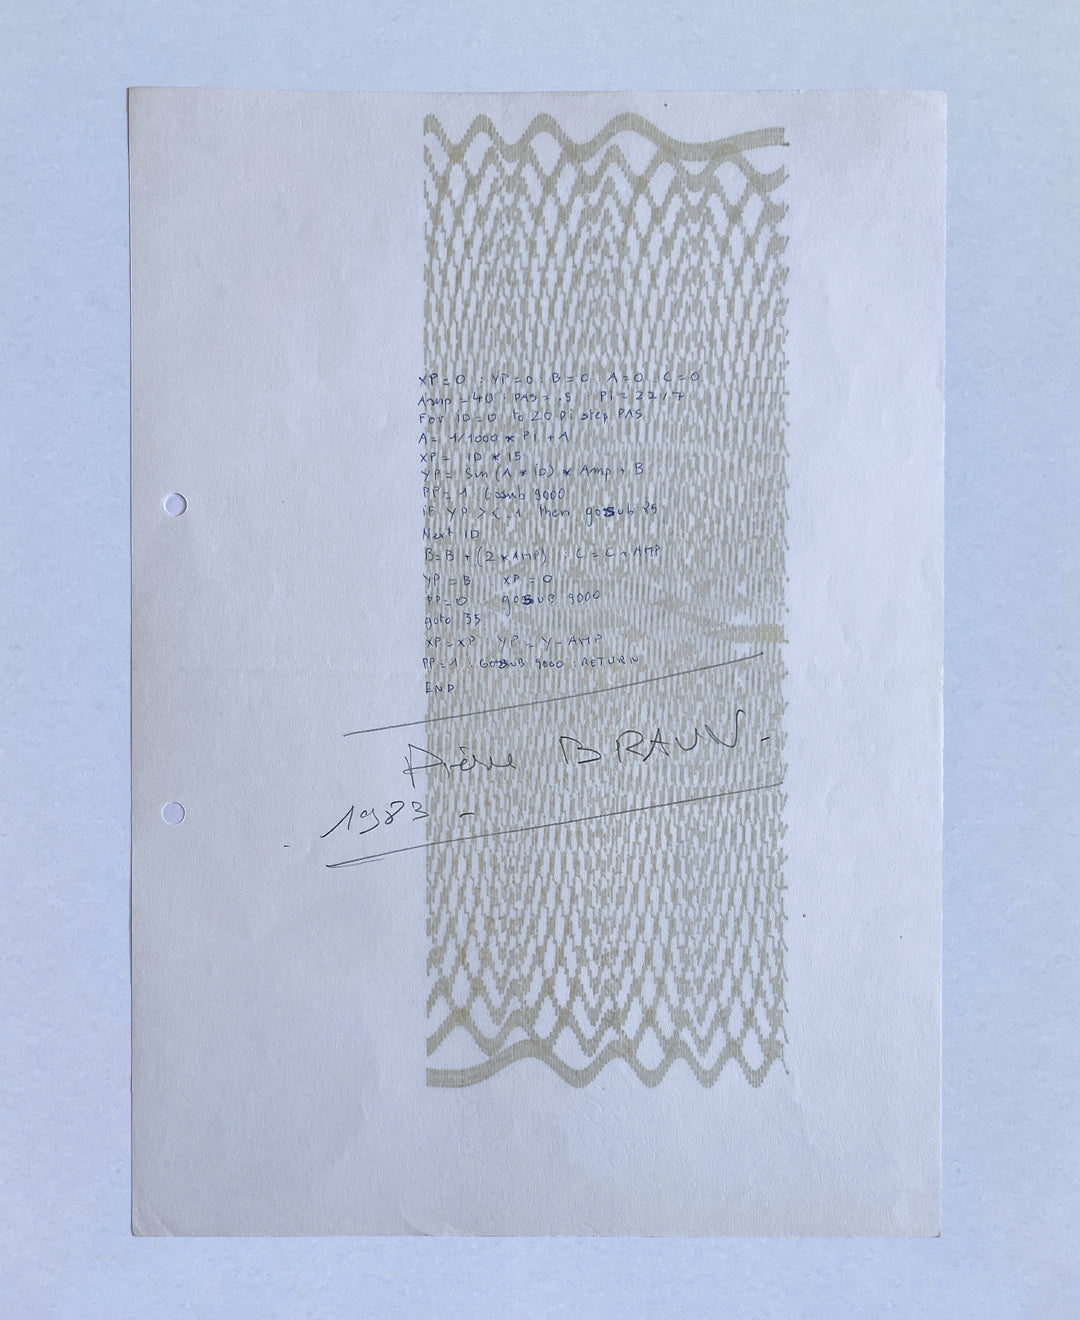 XP=0 : YP=0 : B=0 : A=0 : C=0
Amp=40 : PAS=.5 Pi=22/7
For ID=0 to 20 Pi step PAS
A= 1/1000 * Pi + A
XP= ID * 15
YP= Sin (A * ID) * Amp + B
PP=1 : Gosub 9000
IF YP ><.1 then gosub 85
Next ID
B=B + (2*AMP) : C=C+AMP
YP=B : XP=0
PP=0 : gosub 9000
goto 35
XP=XP : YP=Y-AMP
PP=1 : GOSUB 9000 : RETURN
END
BRAUN.-
1983 -